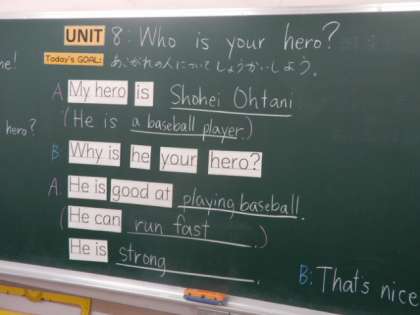 UNIT 8: Who is your hero?
Today's GOAL: あこがれの人についてしょうかいしよう。
me!
A My hero is Shohei Ohtani
(He is a baseball player.)
hero?
B: Why is he your hero?
A. He is good at playing baseball.
(He can run fast.)
He is strong
B: That's nice